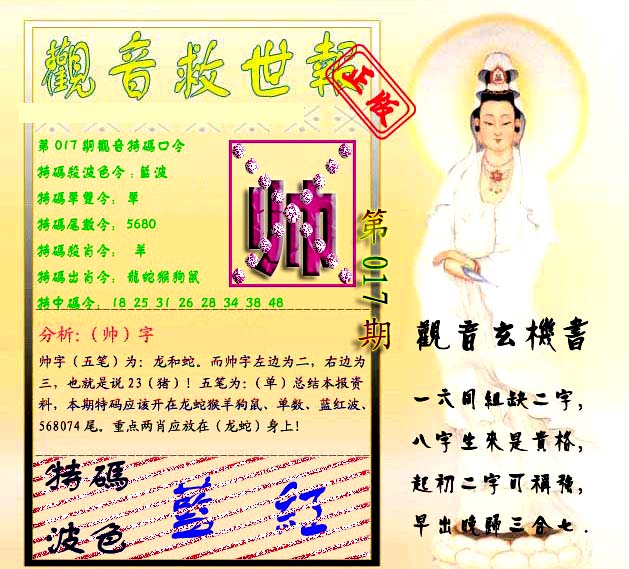 觀音救世報
正版
第017期觀音特碼口令
特碼殺波色令：藍波
特碼單雙令： 單
特碼尾數令： 5680
特碼殺肖令： 羊
特碼出肖令： 龍蛇猴狗鼠
特中碼令： 18 25 31 26 28 34 38 48
帅
第017期
分析:（帅）字
帅字（五笔）为：龙和蛇。而帅字左边为二，右边为
三，也就是说 23（猪）！五笔为：（单）总结本报资
料，本期特码应该开在龙蛇猴羊狗鼠、单数、蓝红波、
568074 尾。重点两肖应放在（龙蛇）身上！
特碼
波色
藍 紅
觀音玄機書
一六同組缺二字,
八字生來是貴格,
起初二字可稱強,
早出晚歸三合七.